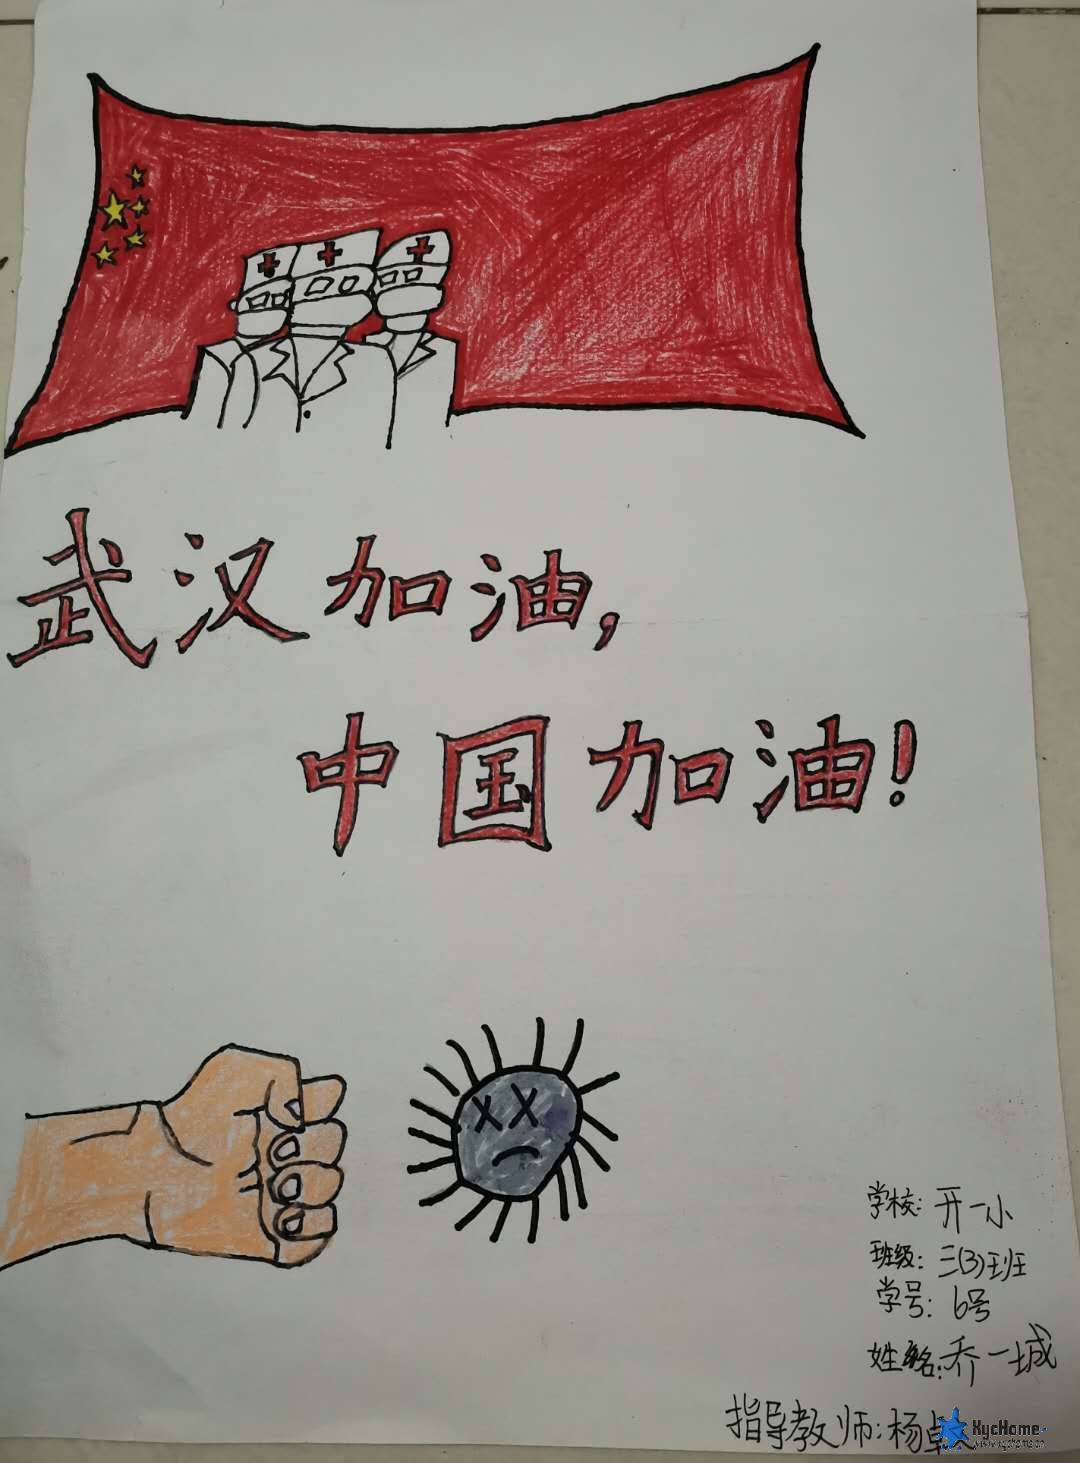 武汉加油,
中国加油!
学校: 开一小
班级: 三(3)班
学号: 6号
姓名: 乔一城
指导教师: 杨卓
XycHome
www.xychome.cn